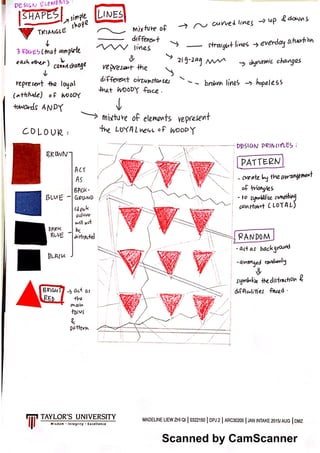 DESIGN ELEMENTS
SHAPES → simple shape
▼ TRIANGLE
3 EDGES (that complete
each other) can't change
represent the loyal
(attitude) of WOODY
towards ANDY
LINES
Mixture of
different
lines
&
represent the
different circumstances
that WOODY face.
→ curved lines → up & downs
→ straight lines → everyday situation
→ zig-zag → dynamic changes
broken lines → hopeless
mixture of elements represent
the LOYALness of WOODY
COLOUR :
BROWN
BLUE
DARK
BLUE
BLACK
ACT
AS
BACK-
GROUND
will not
be
distracted
BRIGHT
RED
→ act as
the
main
focus
&
pattern
DESIGN PRINCIPLES :
PATTERN
- create by the arrangement
of triangles
- to symbolise something
constant (LOYAL)
RANDOM
- act as background
- arranged randomly
&
symbolise the distraction &
difficulties faced.
TAYLOR'S UNIVERSITY
Wisdom · Integrity · Excellence
MADELINE LIEW ZHI QI | 0322150 | DPJ 2 | ARC30205 | JAN INTAKE 2015/ AUG | DM2
Scanned by CamScanner